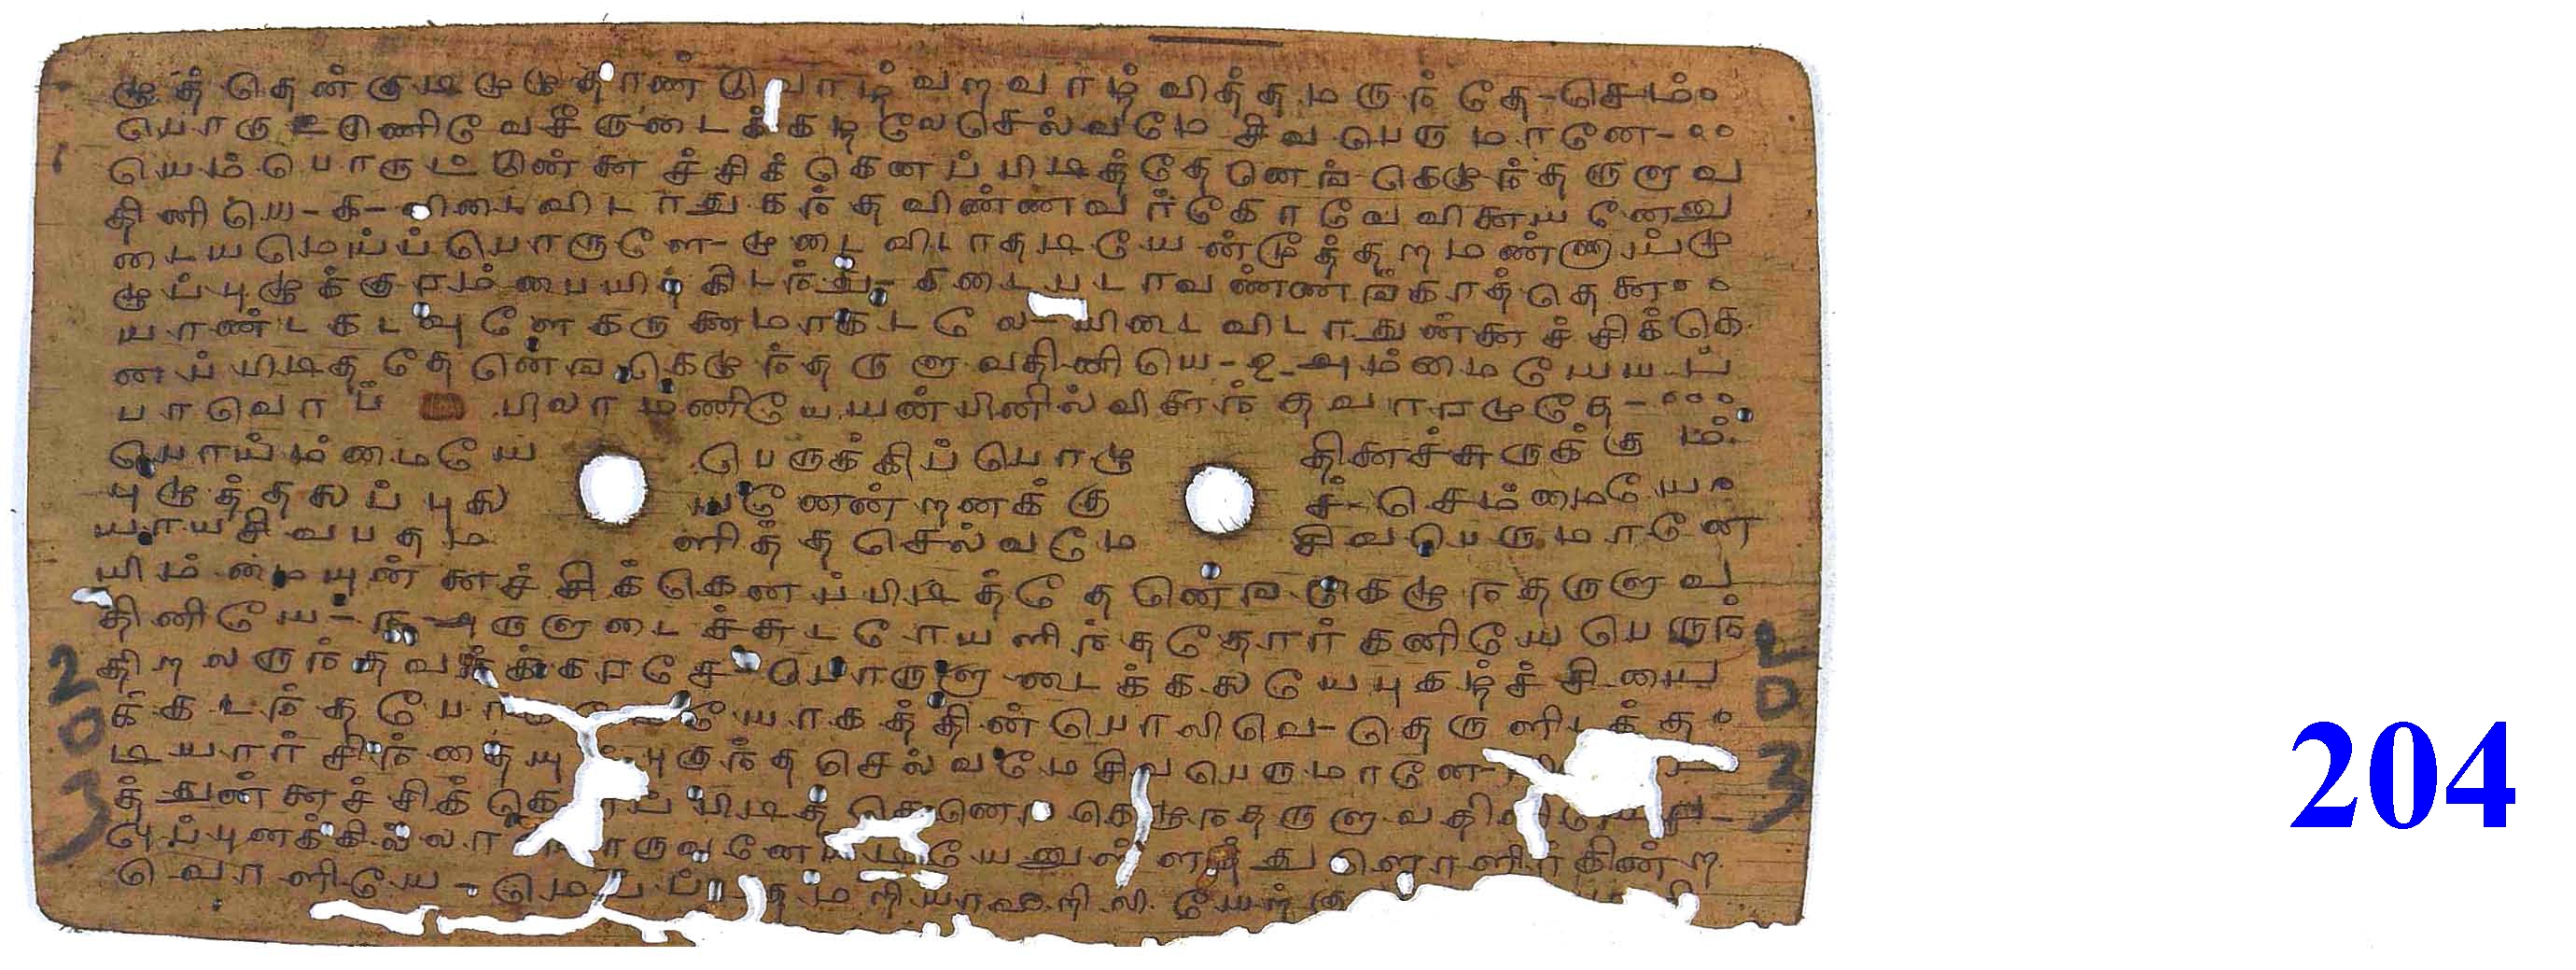 ழுத் தென்குடி முழுதாண்டு வாழ்வற வாழ்வித்த மருந்தே - செம்
பொருட்டுணிவே சீருடைக் கழலே செல்வமே சிவபெருமானே -
யெம்பொருட் டுன்னைச்சிக்கெனப்பிடித்தேனெங் கெழுந்தருளுவ
தினியெ - ௧ - விடைவிடாதுகந்த விண்ணவர்கோவே வினையனேனு
டைய மெய்ப்பொருளே - முடை விடாதடியேன் மூத்தற மண்ணாய் மு
ழுப்புழுக்குரம்பையிற் கிடந்து - கடைபடாவண்ணங் காத்தெனை
யாண்ட கடவுளே கருணைமாகடலே - யிடைவிடாதுன்னைச்சிக்கெ
னப்பிடித்தேனெங்கெழுந்தருளுவதினியெ - ௨ - அம்மையேயப்
பாவொப் பிலாமணியேயன்பினில் விளைந்தவாரமுதே -
பொய்ம்மையே பெருக்கிப் பொழு தினைச்சுருக்கும்
புழுத்தலைப் புலை யனேன்றனக்கு ச் - செம்மையே
யாய சிவபதம ளித்த செல்வமே சிவபெருமானே
யிம்மையுன்னைச்சிக்கெனப்பிடித்தேனெங்கெழுந்தருளுவ
தினியே - ௩ - அருளுடைச்சுடரேயளிந்ததோர் கனியே பெருந்
திறலருந்தவர்க்கரசே - பொருளுடைக்கலையே புகழ்ச்சியை
க்கடந்த போகமே - யோகத்தின் பொலிவெ - தெருளிடத்த
டியார் சிந்தையுட் புகுந்த செல்வமே சிவபெருமானே -
த் துன்னைச்சிக்கெனப்பிடித்தெனெங்கெழுந்தருளுவதினியே
ஒப்புனக்கில்லா வொருவனே யடியேனுள்ளத்துளொளிர்கின்ற
வொளியே - மெய்ப்பதமறியா வீறிலியேற்கு
203
203
204